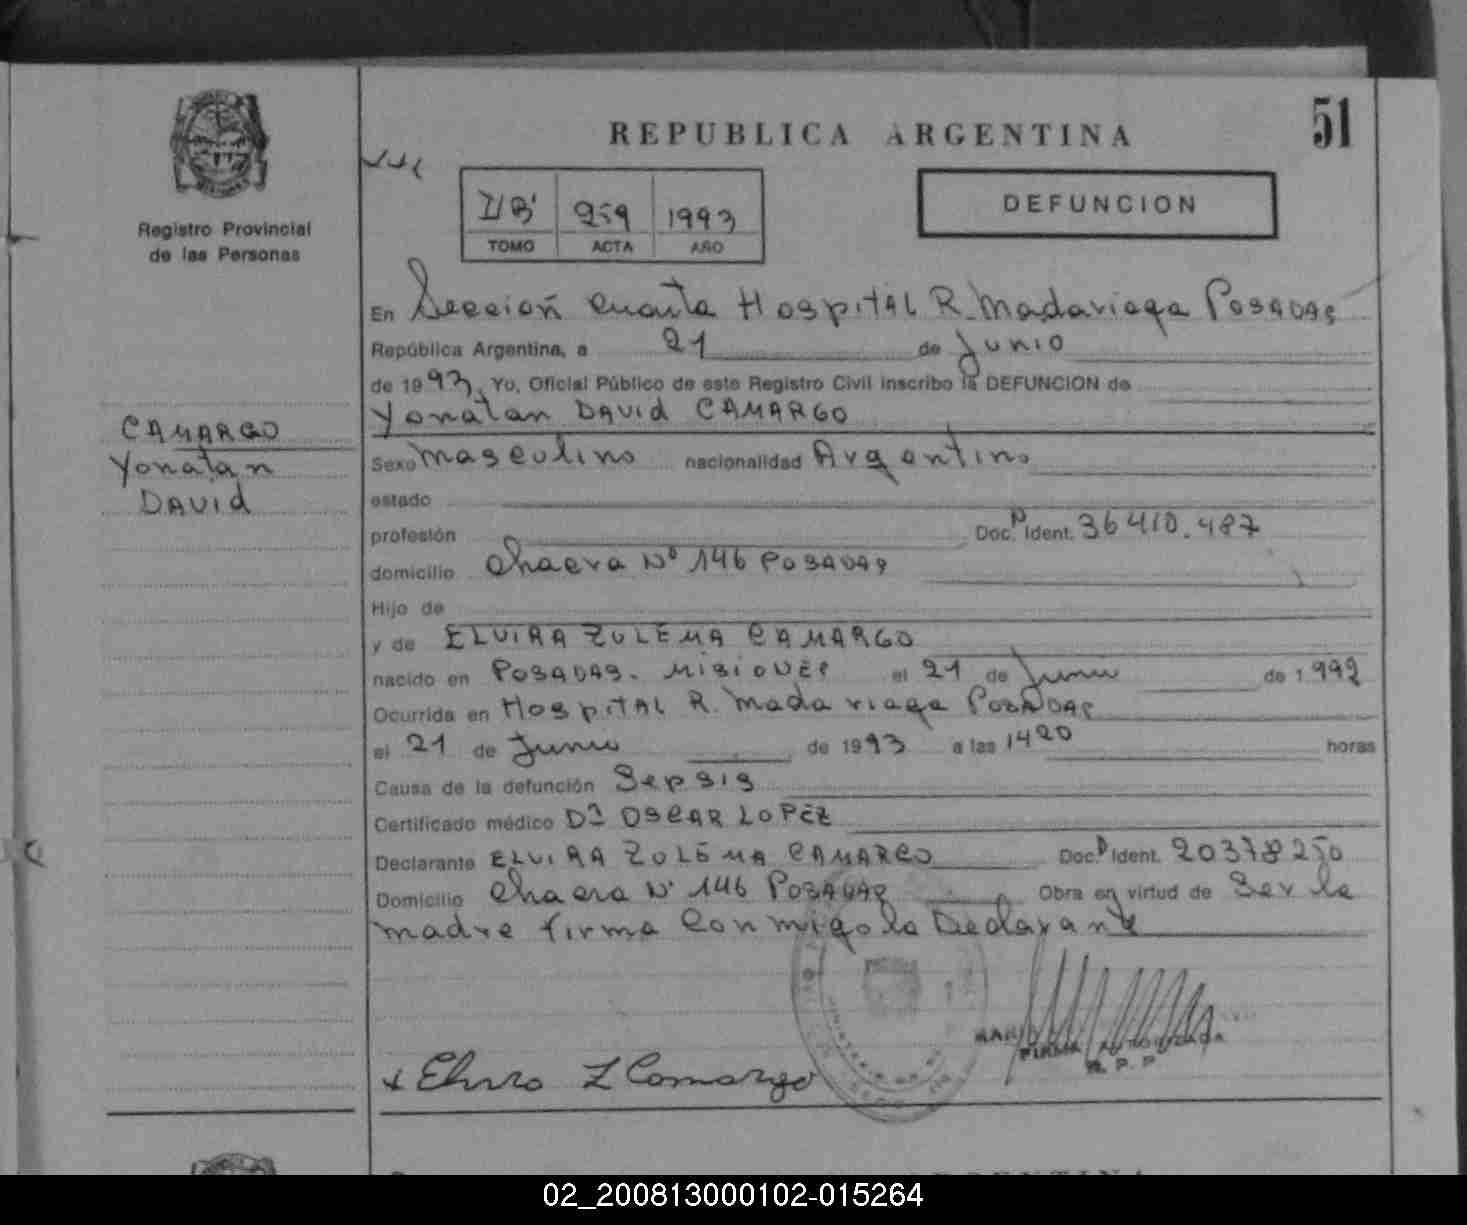 51
REPUBLICA ARGENTINA
259 1993
TOMO ACTA AÑO
DEFUNCION
Registro Provincial
de las Personas
CAMARGO
Yonatan
DAVid
En Sección Cuarta HospiTAL R. Madariaga POSADAS
República Argentina, a 21 de Junio
de 1993, Yo, Oficial Público de este Registro Civil inscribo la DEFUNCION de
Yonatan DAVid CAMARGO
Sexo Masculino nacionalidad Argentino
estado
profesión Doc. N Ident. 36410.487
domicilio Chacra Nº 146 POSADAS
Hijo de
y de ELVIRA ZULEMA CAMARGO
nacido en POSADAS. MISIONES el 21 de Junio de 1992
Ocurrida en HospiTAL R. Madariaga POSADAS
el 21 de Junio de 1993 a las 1420 horas
Causa de la defunción Sepsis
Certificado médico Dr OSCAR LOPEZ
Declarante ELVIRA ZULEMA CAMARGO Doc. Ident. 20378250
Domicilio Chacra Nº 146 POSADAS Obra en virtud de Ser la
madre firma Conmigo la Declarante
Elvira Z Camargo
FIRMA AUTORIZADA
R. P. P.
02_200813000102-015264